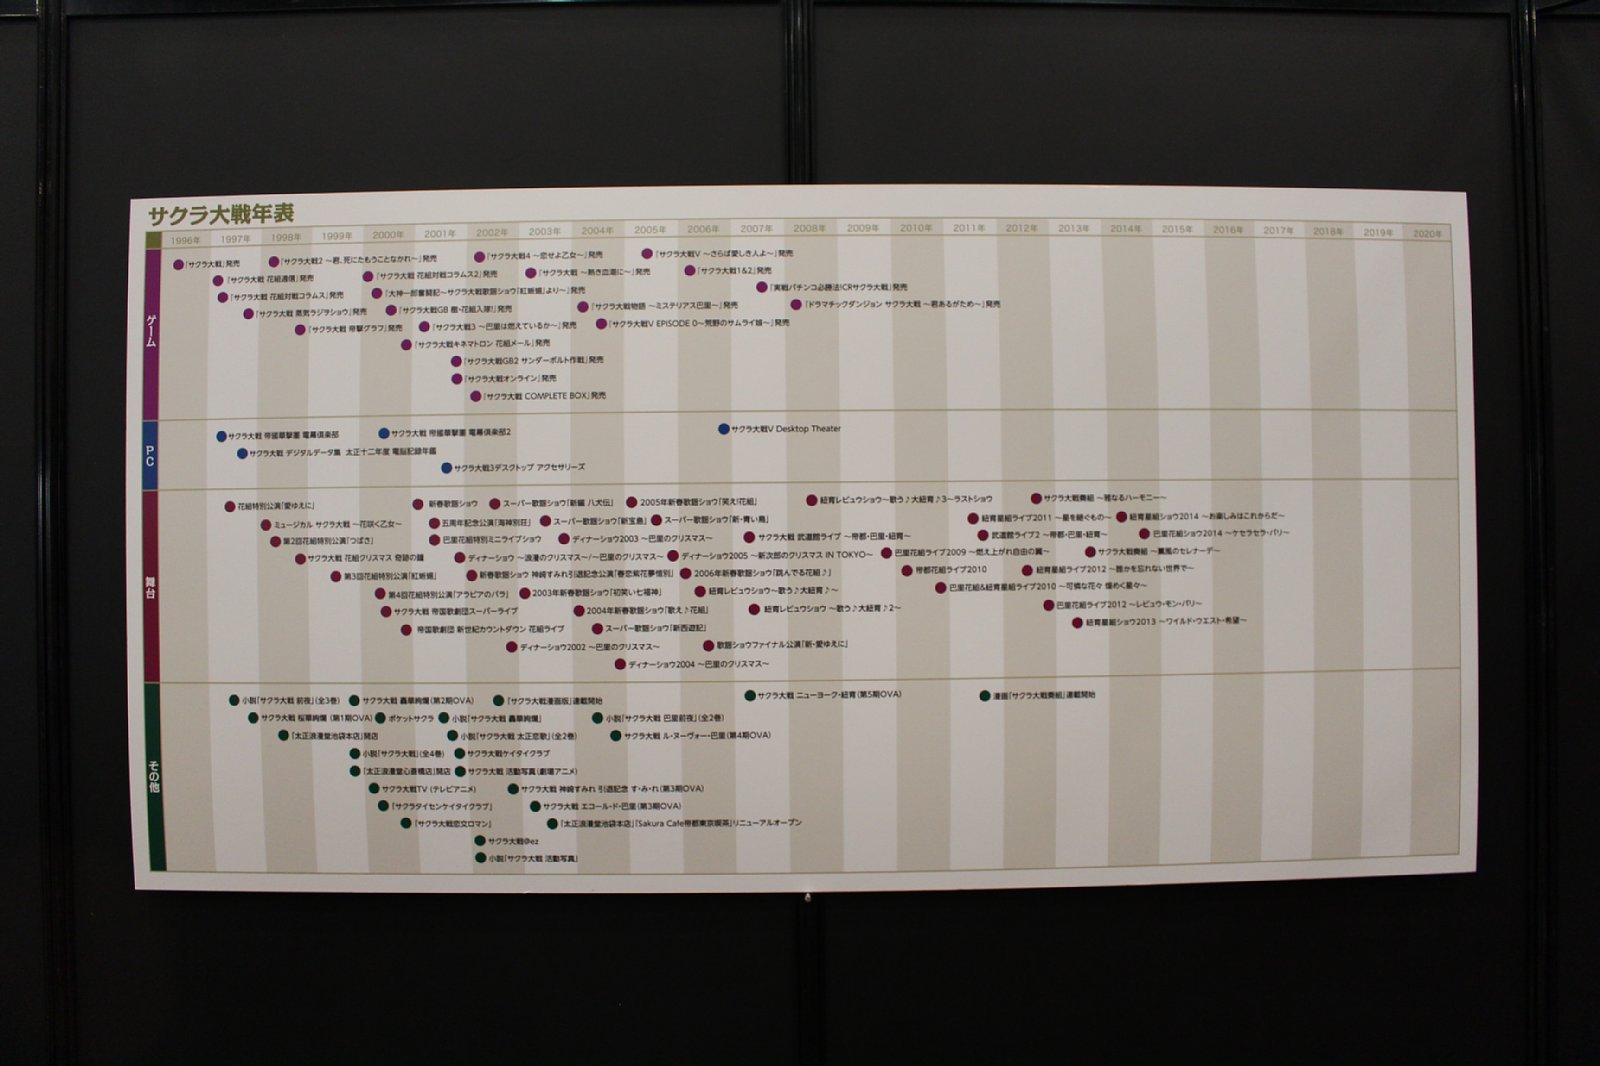 サクラ大戦年表
1996年 1997年 1998年 1999年 2000年 2001年 2002年 2003年 2004年 2005年 2006年 2007年 2008年 2009年 2010年 2011年 2012年 2013年 2014年 2015年 2016年 2017年 2018年 2019年 2020年
ゲーム
「サクラ大戦」発売
「サクラ大戦2 ～君、死にたもうことなかれ～」発売
「サクラ大戦4 ～恋せよ乙女～」発売
「サクラ大戦V ～さらば愛しき人よ～」発売
「サクラ大戦 花組通信」発売
「サクラ大戦 花組対戦コラムス2」発売
「サクラ大戦 ～熱き血潮に～」発売
「サクラ大戦1&2」発売
「サクラ大戦 花組対戦コラムス」発売
「大神一郎奮闘記～サクラ大戦歌謡ショウ「紅蜥蜴」より～」発売
「実戦パチンコ必勝法!CRサクラ大戦」発売
「サクラ大戦 蒸気ラジヲショウ」発売
「サクラ大戦GB 檄・花組入隊!」発売
「サクラ大戦物語 ～ミステリアス巴里～」発売
「ドラマチックダンジョン サクラ大戦 ～君あるがため～」発売
「サクラ大戦 帝撃グラフ」発売
「サクラ大戦3 ～巴里は燃えているか～」発売
「サクラ大戦V EPISODE 0～荒野のサムライ娘～」発売
「サクラ大戦キネマトロン 花組メール」発売
「サクラ大戦GB2 サンダーボルト作戦」発売
「サクラ大戦オンライン」発売
「サクラ大戦 COMPLETE BOX」発売
PC
サクラ大戦 帝國華撃團 電幕倶楽部
サクラ大戦 帝國華撃團 電幕倶楽部2
サクラ大戦V Desktop Theater
サクラ大戦 デジタルデータ集 太正十二年度 電脳記録年鑑
サクラ大戦3デスクトップ アクセサリーズ
舞台
花組特別公演「愛ゆえに」
新春歌謡ショウ
スーパー歌謡ショウ「新編 八犬伝」
2005年新春歌謡ショウ「笑え!花組」
紐育レビュウショウ～歌う♪大紐育♪3～ラストショウ
サクラ大戦奏組 ～雅なるハーモニー～
ミュージカル サクラ大戦 ～花咲く乙女～
五周年記念公演「海神別荘」
スーパー歌謡ショウ「新宝島」
スーパー歌謡ショウ「新・青い鳥」
紐育星組ライブ2011 ～星を継ぐもの～
紐育星組ショウ2014 ～お楽しみはこれからだ～
第2回花組特別公演「つばさ」
巴里花組特別ミニライブショウ
ディナーショウ2003 ～巴里のクリスマス～
サクラ大戦 武道館ライブ ～帝都・巴里・紐育～
武道館ライブ2 ～帝都・巴里・紐育～
巴里花組ショウ2014 ～ケセラセラ・パリ～
サクラ大戦 花組クリスマス 奇跡の鐘
ディナーショウ ～浪漫のクリスマス～/～巴里のクリスマス～
ディナーショウ2005 ～新次郎のクリスマス IN TOKYO～
巴里花組ライブ2009 ～燃え上がれ自由の翼～
サクラ大戦奏組 ～薫風のセレナーデ～
第3回花組特別公演「紅蜥蜴」
新春歌謡ショウ 神崎すみれ引退記念公演「春恋紫花夢惜別」
2006年新春歌謡ショウ「跳んでる花組♪」
帝都花組ライブ2010
紐育星組ライブ2012 ～誰かを忘れない世界で～
第4回花組特別公演「アラビアのバラ」
2003年新春歌謡ショウ「初笑い七福神」
紐育レビュウショウ～歌う♪大紐育♪～
巴里花組&紐育星組ライブ2010 ～可憐な花々 煌めく星々～
サクラ大戦 帝国歌劇団スーパーライブ
2004年新春歌謡ショウ「歌え♪花組」
紐育レビュウショウ ～歌う♪大紐育♪2～
巴里花組ライブ2012 ～レビュウ・モン・パリ～
帝国歌劇団 新世紀カウントダウン 花組ライブ
スーパー歌謡ショウ「新西遊記」
紐育星組ショウ2013 ～ワイルド・ウエスト・希望～
ディナーショウ2002 ～巴里のクリスマス～
歌謡ショウファイナル公演「新・愛ゆえに」
ディナーショウ2004 ～巴里のクリスマス～
その他
小説「サクラ大戦 前夜」(全3巻)
サクラ大戦 轟華絢爛(第2期OVA)
「サクラ大戦漫画版」連載開始
サクラ大戦 ニューヨーク・紐育(第5期OVA)
漫画「サクラ大戦奏組」連載開始
サクラ大戦 桜華絢爛(第1期OVA)
ポケットサクラ
小説「サクラ大戦 轟華絢爛」
小説「サクラ大戦 巴里前夜」(全2巻)
「太正浪漫堂池袋本店」開店
小説「サクラ大戦 太正恋歌」(全2巻)
サクラ大戦 ル・ヌーヴォー・巴里(第4期OVA)
小説「サクラ大戦」(全4巻)
サクラ大戦ケイタイクラブ
「太正浪漫堂心斎橋店」開店
サクラ大戦 活動写真(劇場アニメ)
サクラ大戦TV (テレビアニメ)
サクラ大戦 神崎すみれ 引退記念 す・み・れ(第3期OVA)
「サクラタイセンケイタイクラブ」
サクラ大戦 エコール・ド・巴里(第3期OVA)
「サクラ大戦恋文ロマン」
「太正浪漫堂池袋本店」「Sakura Cafe帝都東京喫茶」リニューアルオープン
サクラ大戦@ez
小説「サクラ大戦 活動写真」